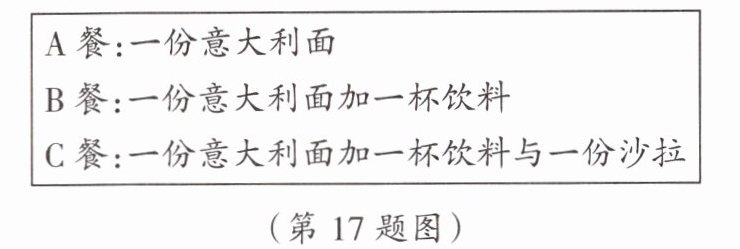 A 餐:一份意大利面
B 餐:一份意大利面加一杯饮料
C 餐:一份意大利面加一杯饮料与一份沙拉
(第 17 题图)